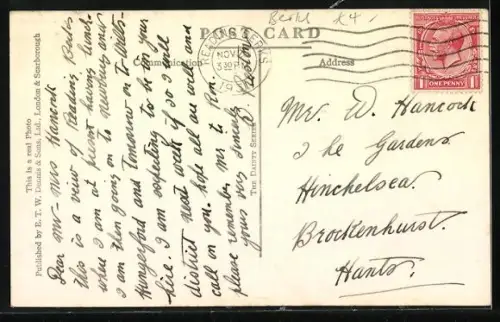 Berks K4/-
POST CARD
READING BERKS
NOV
3 30 PM
19
Communication
Address
POSTAGE REVENUE
ONE PENNY
This is a real Photo
Published by E. T. W. Dennis & Sons, Ltd., London & Scarborough
THE DAINTY SERIES
Dear Mr. & Mrs Hancock
This is a view of Reading Berks
where I am at present having lunch.
I am then going on to Newbury and
Hungerford and tomorrow on to Wilt-
shire. I am expecting to be in your
district next week if so I will
call on you. hot all are well and
please remember me to Ron.
Yours very sincerely
Mr. D. Hancock
The Gardens
Hinchelsea.
Brockenhurst.
Hants.